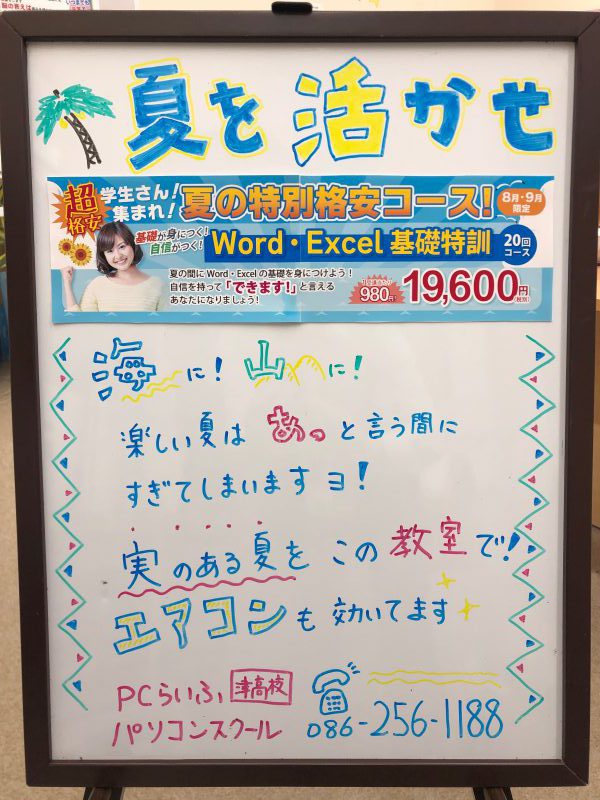 夏を活かせ
超格安
学生さん!集まれ!
夏の特別格安コース!
8月・9月限定
基礎が身につく!
自信がつく!
Word・Excel 基礎特訓
20回コース
夏の間にWord・Excelの基礎を身につけよう!
自信を持って「できます!」と言える
あなたになりましょう!
980円
19,600円(税別)
海に! 山に!
楽しい夏は あっ と言う間に
すぎてしまいますヨ!
実のある夏を この教室で!
エアコンも 効いてます
PCらいふ 津高校
パソコンスクール
086-256-1188